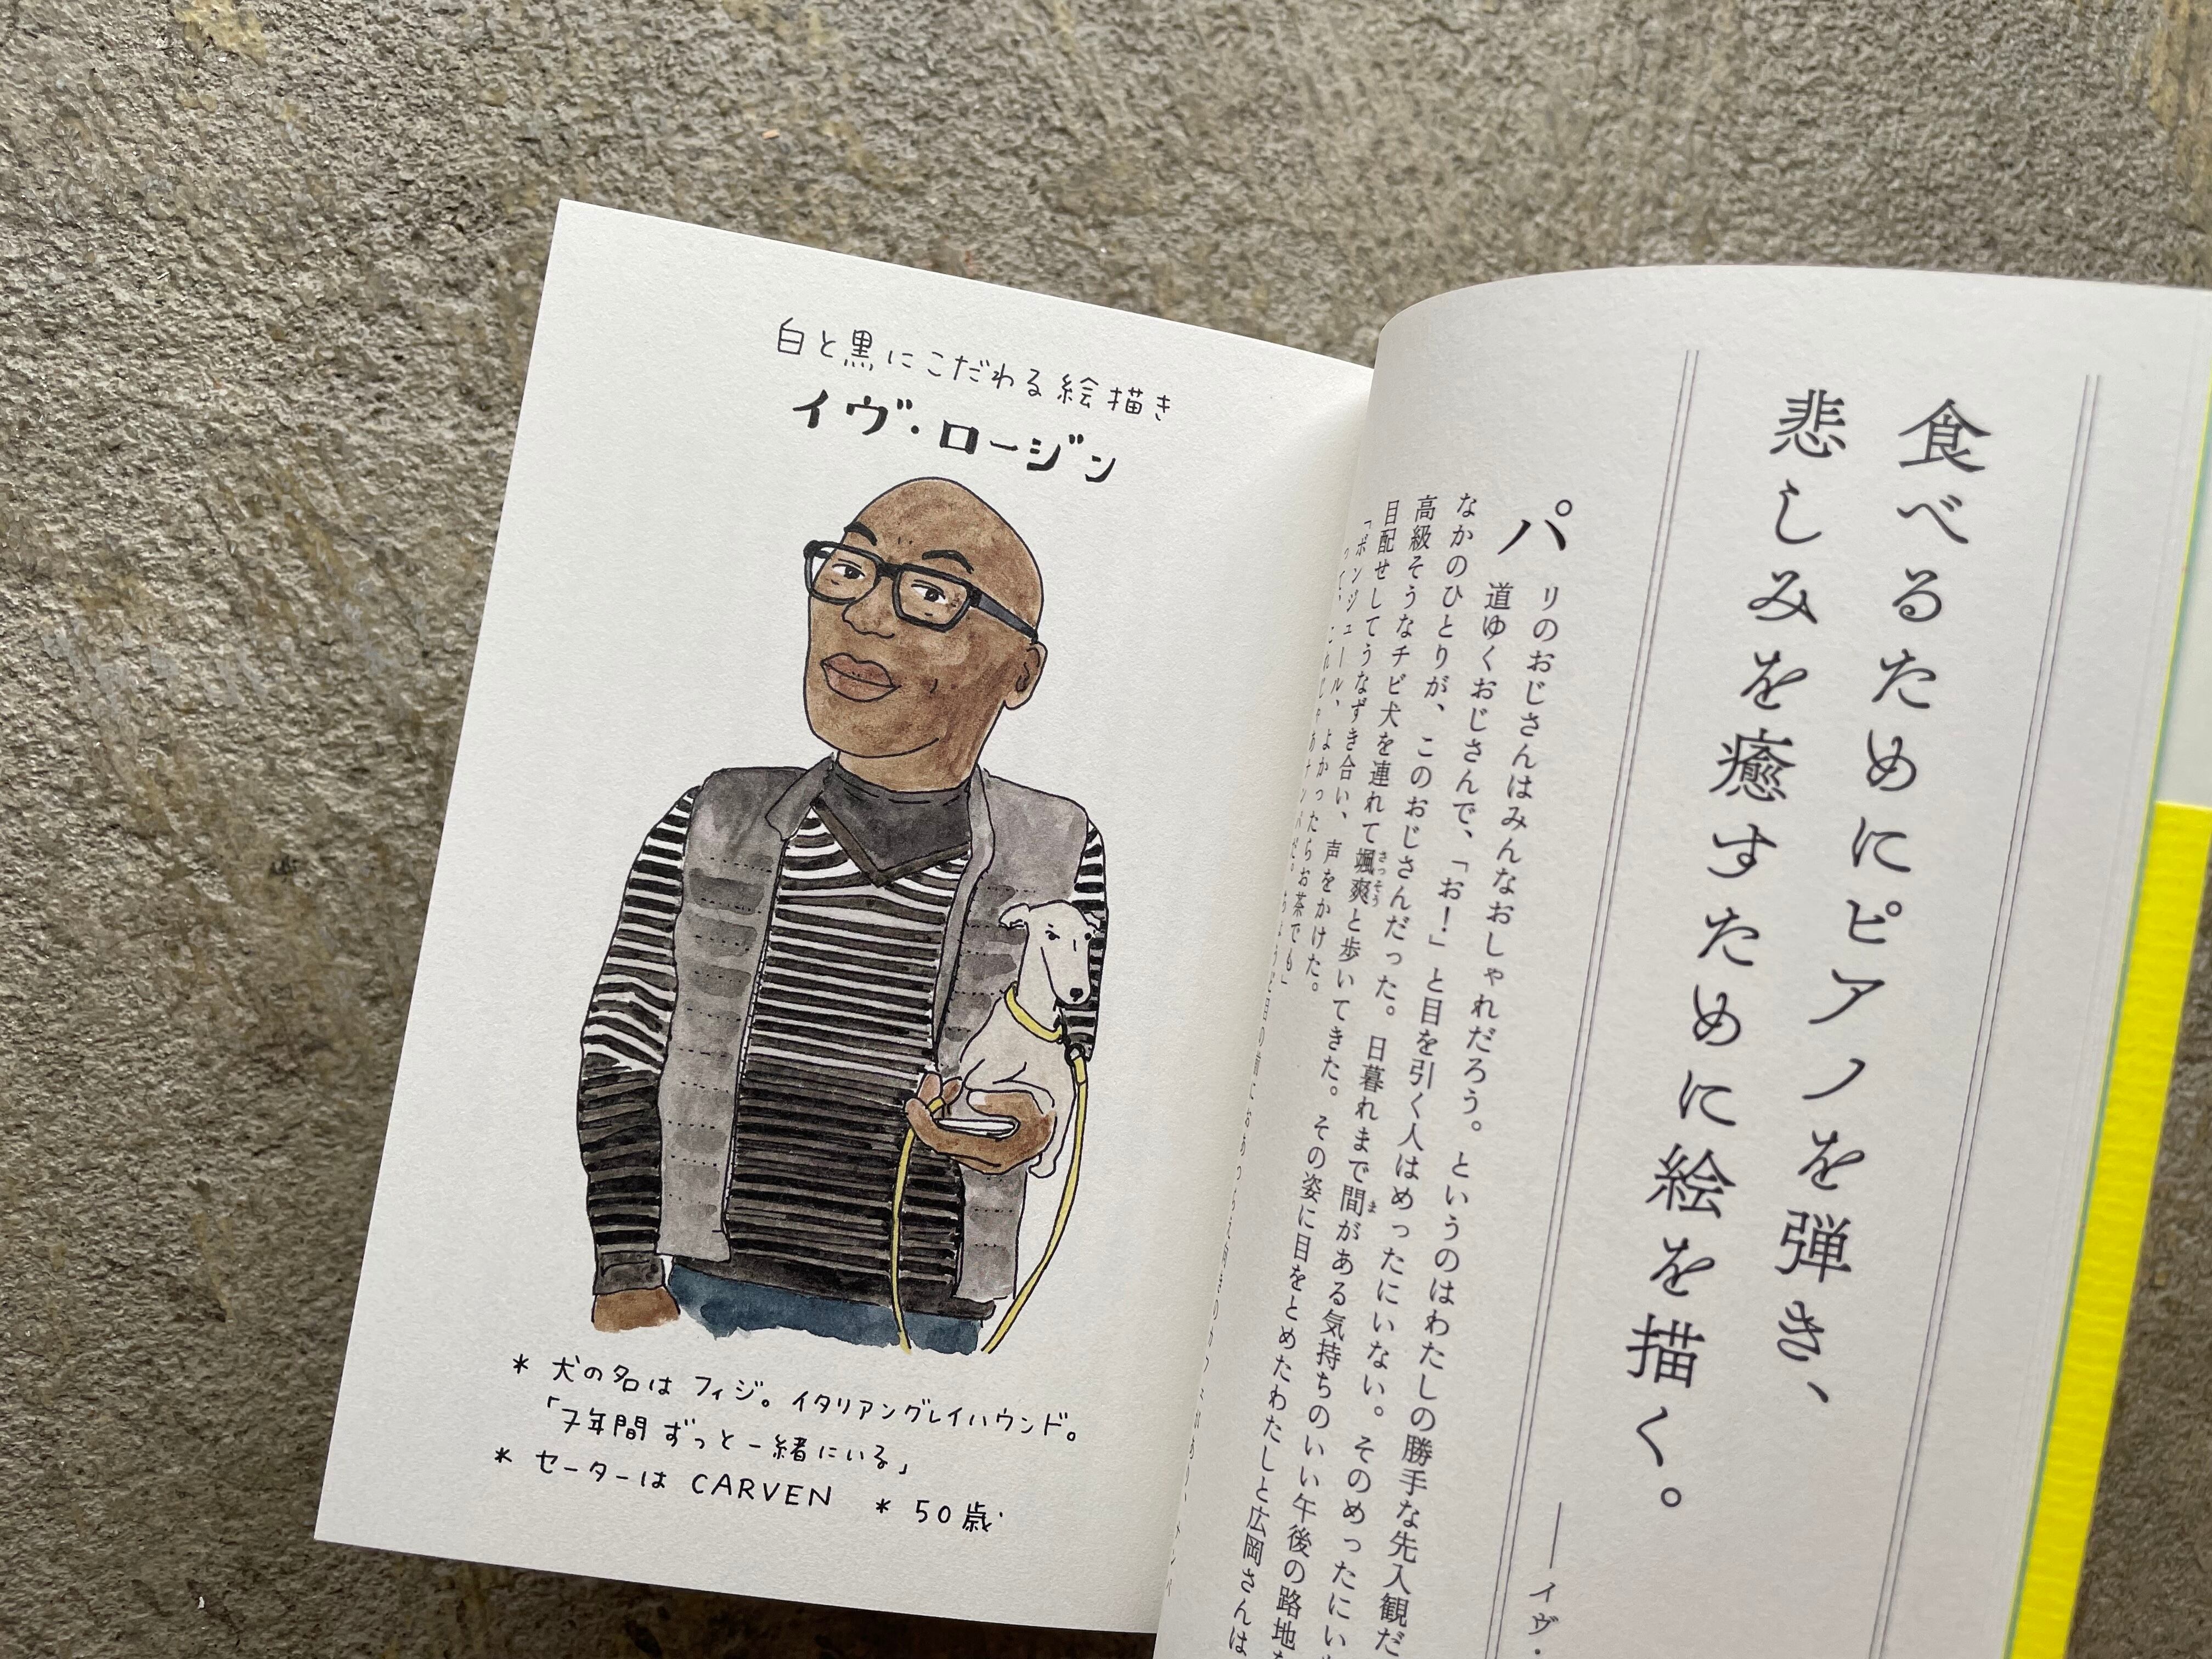 白と黒にこだわる絵描き
イヴ・ロージン
* 犬の名は フィジ。イタリアングレイハウンド。
「7年間 ずっと一緒にいる」
* セーターは CARVEN * 50歳
食べるためにピアノを弾き、
悲しみを癒すために絵を描く。
――イヴ・
パリのおじさんはみんなおしゃれだろう。というのはわたしの勝手な先入観だ
道ゆくおじさんで、「お！」と目を引く人はめったにいない。そのめったにい
なかのひとりが、このおじさんだった。日暮れまで間がある気持ちのいい午後の路地
高級そうなチビ犬を連れて颯爽と歩いてきた。その姿に目をとめたわたしと広岡さんは
目配せしてうなずき合い、声をかけた。
「ボンジュール、よかったらお茶でも」